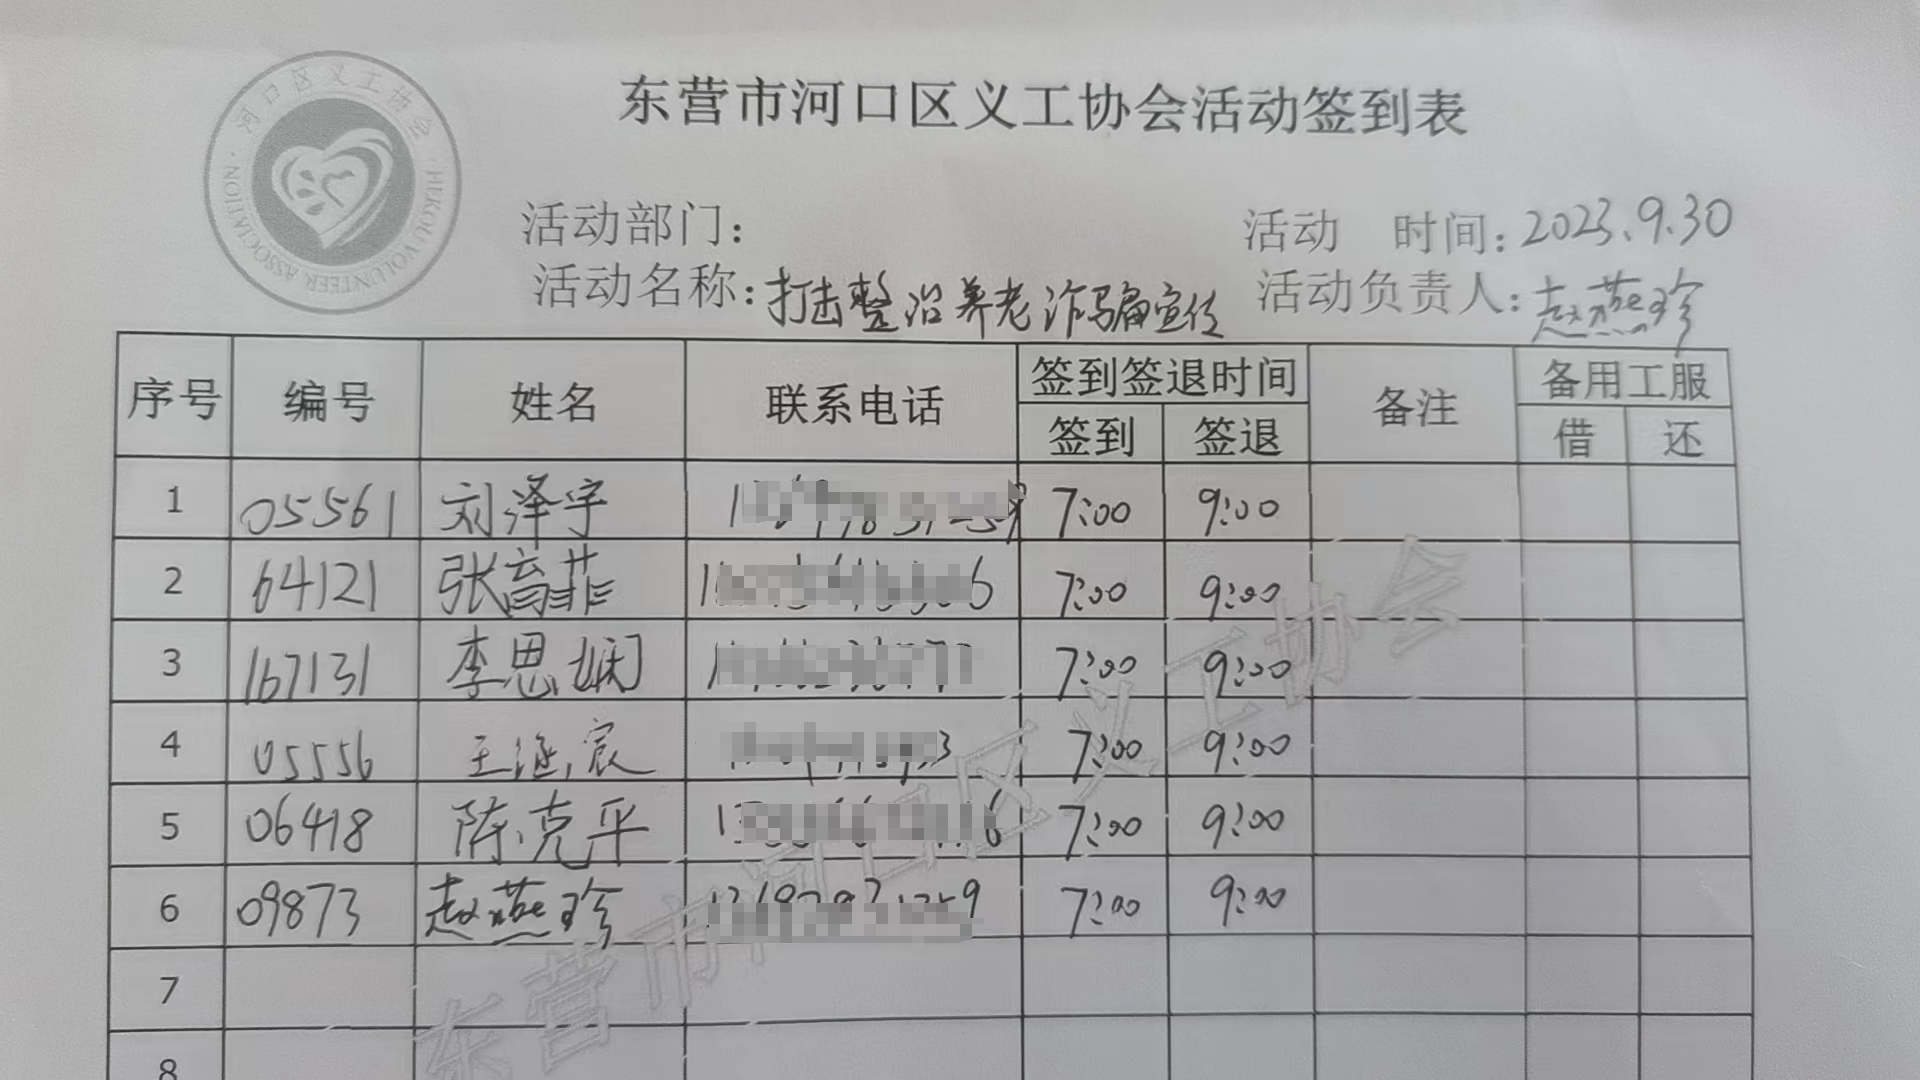 东营市河口区义工协会活动签到表
河口区义工协会
HEKOU VOLUNTEER ASSOCTATEION
活动部门： 活动 时间：2023.9.30
活动名称：打击整治养老诈骗宣传 活动负责人：赵燕珍
序号 编号 姓名 联系电话 签到签退时间 备注 备用工服
签到 签退 借 还
1 05561 刘泽宇 7:00 9:00
2 64121 张育菲 7:00 9:00
3 167131 李思娴 7:00 9:00
4 05556 王涵宸 7:00 9:00
5 06418 陈克平 7:00 9:00
6 09873 赵燕珍 7:00 9:00
7
8
东营市河口区义工协会